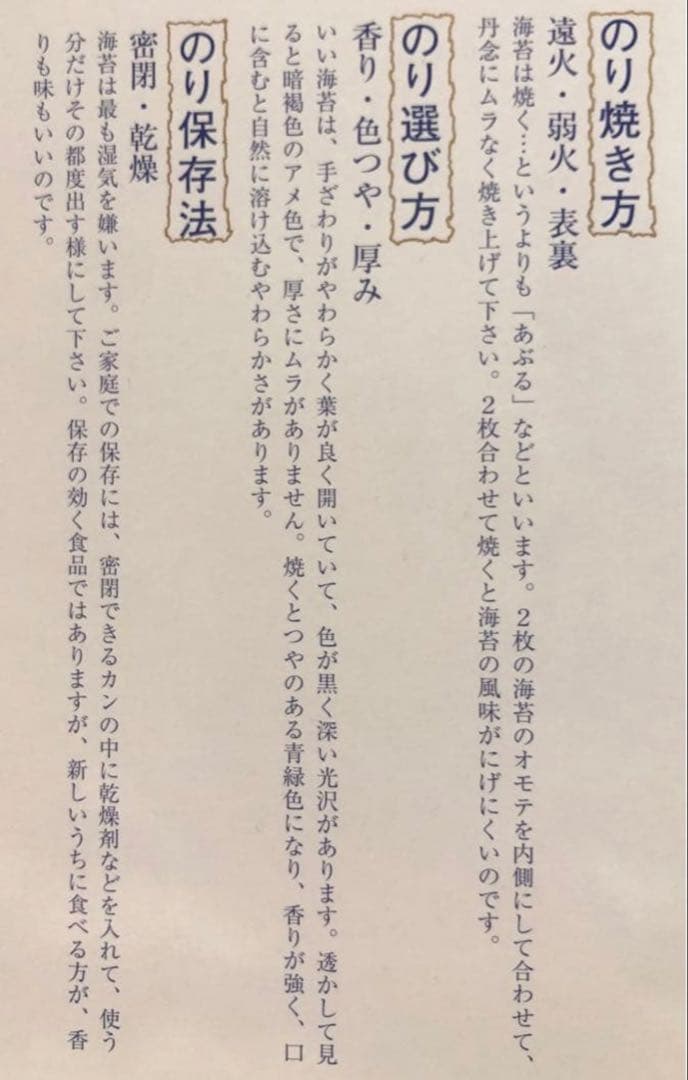 のり焼き方
遠火・弱火・表裏
海苔は焼く…というよりも「あぶる」などといいます。２枚の海苔のオモテを内側にして合わせて、
丹念にムラなく焼き上げて下さい。２枚合わせて焼くと海苔の風味がにげにくいのです。
のり選び方
香り・色つや・厚み
いい海苔は、手ざわりがやわらかく葉が良く開いていて、色が黒く深い光沢があります。透かして見
ると暗褐色のアメ色で、厚さにムラがありません。焼くとつやのある青緑色になり、香りが強く、口
に含むと自然に溶け込むやわらかさがあります。
のり保存法
密閉・乾燥
海苔は最も湿気を嫌います。ご家庭での保存には、密閉できるカンの中に乾燥剤などを入れて、使う
分だけその都度出す様にして下さい。保存の効く食品ではありますが、新しいうちに食べる方が、香
りも味もいいのです。